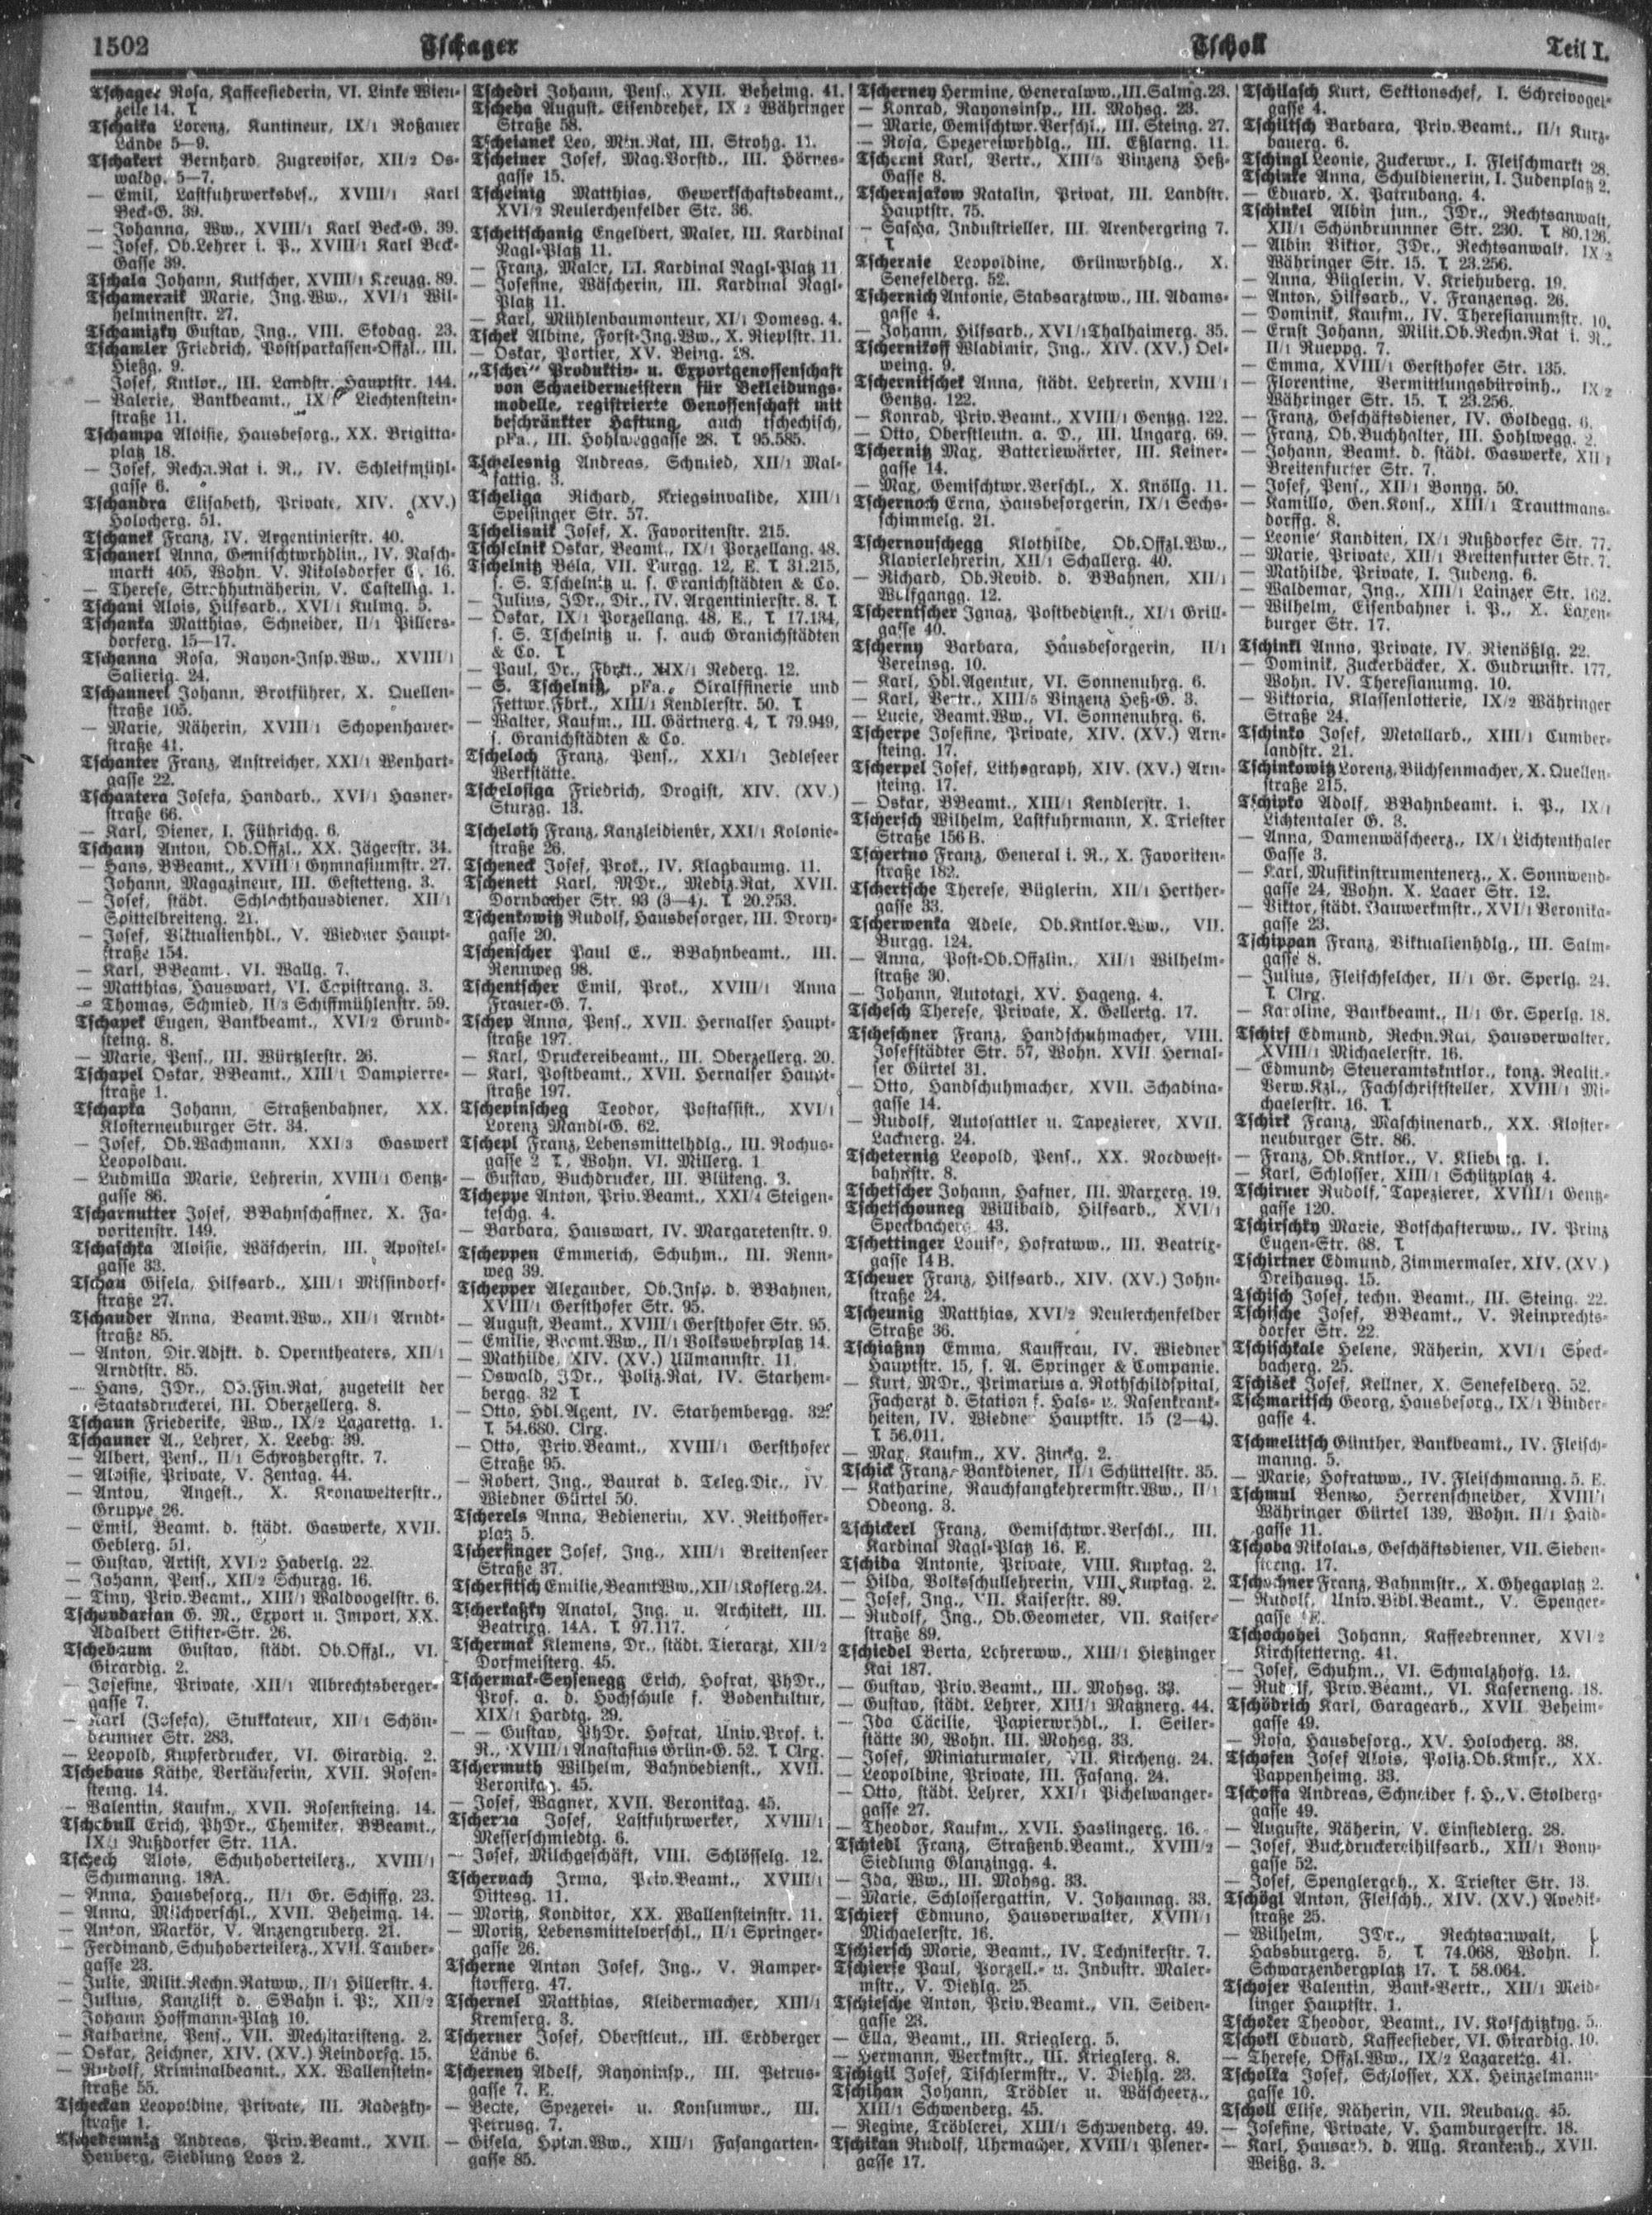 1502 Tschager Tscholl Teil I.
Tschager Rosa, Kaffeesiederin, VI. Linke Wien-
zeile 14. T.
Tschaika Lorenz, Kantineur, IX/1 Roßauer
Lände 5—9.
Tschakert Bernhard, Zugrevisor, XII/2 Os-
waldg. 5—7.
— Emil, Lastfuhrwerksbes., XVIII/1 Karl
Beck-G. 39.
— Johanna, Ww., XVIII/1 Karl Beck-G. 39.
— Josef, Ob.Lehrer i. P., XVIII/1 Karl Beck-
Gasse 39.
Tschala Johann, Kutscher, XVIII/1 Kreuzg. 89.
Tschamernik Marie, Ing.Ww., XVI/1 Wil-
helminenstr. 27.
Tschamizky Gustav, Ing., VIII. Skodag. 23.
Tschamler Friedrich, Postsparkassen-Offzl., III.
Hießg. 9.
Josef, Kntlor., III. Landstr. Hauptstr. 144.
— Valerie, Bankbeamt., IX/ Liechtenstein-
straße 11.
Tschampa Aloisie, Hausbesorg., XX. Brigitta-
platz 18.
— Josef, Rechn.Rat i. R., IV. Schleifmühl-
gasse 6.
Tschandra Elisabeth, Private, XIV. (XV.)
Holocherg. 51.
Tschanek Franz, IV. Argentinierstr. 40.
Tschanerl Anna, Gemischtwrhdlin., IV. Nasch-
markt 405, Wohn. V. Nikolsdorfer G. 16.
— Therese, Strohhutnäherin, V. Castellig. 1.
Tschani Alois, Hilfsarb., XVI/1 Kulmg. 5.
Tschanka Matthias, Schneider, II/1 Pillers-
dorferg. 15—17.
Tschanna Rosa, Rayon-Insp.Ww., XVIII/1
Salierig. 24.
Tschannerl Johann, Brotführer, X. Quellen-
straße 105.
— Marie, Näherin, XVIII/1 Schopenhauer-
straße 41.
Tschanter Franz, Anstreicher, XXI/1 Wenhart-
gasse 22.
Tschantera Josefa, Handarb., XVI/1 Hasner-
straße 66.
— Karl, Diener, I. Führichg. 6.
Tschany Anton, Ob.Offzl., XX. Jägerstr. 34.
— Hans, BBeamt., XVIII/1 Gymnasiumstr. 27.
Johann, Magazineur, III. Gestetteng. 3.
— Josef, städt. Schlachthausdiener, XII/1
Spittelbreiteng. 21.
— Josef, Viktualienhdl., V. Wiedner Haupt-
straße 154.
— Karl, BBeamt., VI. Wallg. 7.
— Matthias, Hauswart, VI. Copistrang. 3.
— Thomas, Schmied, II/3 Schiffmühlenstr. 59.
Tschapek Eugen, Bankbeamt., XVI/2 Grund-
steing. 8.
— Marie, Pens., III. Würtzlerstr. 26.
Tschapel Oskar, BBeamt., XIII/1 Dampierre-
straße 1.
Tschapka Johann, Straßenbahner, XX.
Klosterneuburger Str. 34.
— Josef, Ob.Wachmann, XXI/3 Gaswerk
Leopoldau.
— Ludmilla Marie, Lehrerin, XVIII/1 Gentz-
gasse 86.
Tscharnutter Josef, BBahnschaffner, X. Fa-
voritenstr. 149.
Tschaschka Aloisie, Wäscherin, III. Apostel-
gasse 33.
Tschau Gisela, Hilfsarb., XIII/1 Missindorf-
straße 27.
Tschauder Anna, Beamt.Ww., XII/1 Arndt-
straße 85.
— Anton, Dir.Adjkt. d. Operntheaters, XII/1
Arndtstr. 85.
— Hans, JDr., Ob.Fin.Rat, zugeteilt der
Staatsdruckerei, III. Oberzellerg. 8.
Tschaun Friederike, Ww., IX/2 Lazarettg. 1.
Tschauner A., Lehrer, X. Leebg. 39.
— Albert, Pens., II/1 Schrotzbergstr. 7.
— Aloisie, Private, V. Zentag. 44.
— Anton, Angest., X. Kronawetterstr.,
Gruppe 26.
— Emil, Beamt. d. städt. Gaswerke, XVII.
Geblerg. 51.
— Gustav, Artist, XVI/2 Haberlg. 22.
— Johann, Pens., XII/2 Schurzg. 16.
— Tiny, Priv.Beamt., XIII/1 Waldvogelstr. 6.
Tschavdarian G. M., Export u. Import, XX.
Adalbert Stifter-Str. 26.
Tschebaum Gustav, städt. Ob.Offzl., VI.
Girardig. 2.
— Josefine, Private, XII/1 Albrechtsberger-
gasse 7.
— Karl (Josefa), Stukkateur, XII/1 Schön-
brunner Str. 283.
— Leopold, Kupferdrucker, VI. Girardig. 2.
Tschebaus Käthe, Verkäuferin, XVII. Rosen-
steing. 14.
— Valentin, Kaufm., XVII. Rosensteing. 14.
Tschebull Erich, PhDr., Chemiker, BBeamt.,
IX/1 Nußdorfer Str. 11A.
Tschech Alois, Schuhoberteilerz., XVIII/1
Schumanng. 18A.
— Anna, Hausbesorg., II/1 Gr. Schiffg. 23.
— Anna, Milchverschl., XVII. Beheimg. 14.
— Anton, Markör, V. Anzengruberg. 21.
— Ferdinand, Schuhoberteilerz., XVII. Tauber-
gasse 23.
— Julie, Milit.Rechn.Ratww., II/1 Hillerstr. 4.
— Julius, Kanzlist d. SBahn i. P., XII/2
Johann Hoffmann-Platz 10.
— Katharine, Pens., VII. Mechitaristeng. 2.
— Oskar, Zeichner, XIV. (XV.) Reindorfg. 15.
— Rudolf, Kriminalbeamt., XX. Wallenstein-
straße 55.
Tscheckan Leopoldine, Private, III. Radetzky-
straße 1.
Tschedemnig Andreas, Priv.Beamt., XVII.
Heuberg, Siedlung Loos 2.
Tschedri Johann, Pens., XVII. Beheimg. 41.
Tscheha August, Eisendreher, IX/2 Währinger
Straße 58.
Tscheianek Leo, Min.Rat, III. Strohg. 11.
Tscheiner Josef, Mag.Vorstd., III. Hörnes-
gasse 15.
Tscheinig Matthias, Gewerkschaftsbeamt.,
XVI/2 Neulerchenfelder Str. 36.
Tscheitschanig Engelbert, Maler, III. Kardinal
Nagl-Platz 11.
— Franz, Maler, III. Kardinal Nagl-Platz 11.
— Josefine, Wäscherin, III. Kardinal Nagl-
Platz 11.
— Karl, Mühlenbaumonteur, XI/1 Domesg. 4.
Tschek Albine, Forst-Ing.Ww., X. Rieplstr. 11.
— Oskar, Portier, XV. Being. 28.
„Tschei“ Produktiv- u. Exportgenossenschaft
von Schneidermeistern für Bekleidungs-
modelle, registrierte Genossenschaft mit
beschränkter Haftung, auch tschechisch,
pFa., III. Hohlweggasse 28. T. 95.585.
Tschelesnig Andreas, Schmied, XII/1 Mal-
fattig. 3.
Tscheliga Richard, Kriegsinvalide, XIII/1
Speisinger Str. 57.
Tschelisnik Josef, X. Favoritenstr. 215.
Tschelnik Oskar, Beamt., IX/1 Porzellang. 48.
Tschelnitz Béla, VII. Burgg. 12, E. T. 31.215,
s. S. Tschelnitz u. s. Granichstädten & Co.
— Julius, JDr., Dir., IV. Argentinierstr. 8. T.
— Oskar, IX/1 Porzellang. 48, E., T. 17.134,
s. S. Tschelnitz u. s. auch Granichstädten
& Co. T.
— Paul, Dr., Fbrkt., XIX/1 Nederg. 12.
— S. Tschelnitz, pFa., Ölraffinerie und
Fettwr.Fbrk., XIII/1 Kendlerstr. 50. T.
— Walter, Kaufm., III. Gärtnerg. 4, T. 79.949,
s. Granichstädten & Co.
Tscheloch Franz, Pens., XXI/1 Jedleseer
Werkstätte.
Tschelosiga Friedrich, Drogist, XIV. (XV.)
Sturzg. 13.
Tscheloth Franz, Kanzleidiener, XXI/1 Kolonie-
straße 26.
Tscheneck Josef, Prok., IV. Klagbaumg. 11.
Tschenett Karl, MDr., Mediz.Rat, XVII.
Dornbacher Str. 93 (3—4). T. 20.253.
Tschenkowitz Rudolf, Hausbesorger, III. Drory-
gasse 20.
Tschenscher Paul E., BBahnbeamt., III.
Rennweg 98.
Tschentscher Emil, Prok., XVIII/1 Anna
Frauer-G. 7.
Tschep Anna, Pens., XVII. Hernalser Haupt-
straße 197.
— Karl, Druckereibeamt., III. Oberzellerg. 20.
— Karl, Postbeamt., XVII. Hernalser Haupt-
straße 197.
Tschepinscheg Teodor, Postassist., XVI/1
Lorenz Mandl-G. 62.
Tschepl Franz, Lebensmittelhdlg., III. Rochus-
gasse 2 T., Wohn. VI. Millerg. 1
— Gustav, Buchdrucker, III. Blüteng. 3.
Tscheppe Anton, Priv.Beamt., XXI/4 Steigen-
teschg. 4.
— Barbara, Hauswart, IV. Margaretenstr. 9.
Tscheppen Emmerich, Schuhm., III. Renn-
weg 39.
Tschepper Alexander, Ob.Insp. d. BBahnen,
XVIII/1 Gersthofer Str. 95.
— August, Beamt., XVIII/1 Gersthofer Str. 95.
— Emilie, Beamt.Ww., II/1 Volkswehrplatz 14.
— Mathilde, XIV. (XV.) Ullmannstr. 11.
— Oswald, JDr., Poliz.Rat, IV. Starhem-
bergg. 32 T.
— Otto, Hdl.Agent, IV. Starhembergg. 32.
T. 54.680. Clrg.
— Otto, Priv.Beamt., XVIII/1 Gersthofer
Straße 95.
— Robert, Ing., Baurat d. Teleg.Dir., IV.
Wiedner Gürtel 50.
Tscherels Anna, Bedienerin, XV. Reithoffer-
platz 5.
Tscherfinger Josef, Ing., XIII/1 Breitenseer
Straße 37.
Tscherfitsch Emilie, BeamtWw., XII/1 Koflerg. 24.
Tscherkaßky Anatol, Ing. u. Architekt, III.
Beatrixg. 14A. T. 97.117.
Tschermak Klemens, Dr., städt. Tierarzt, XII/2
Dorfmeisterg. 45.
Tschermak-Seysenegg Erich, Hofrat, PhDr.,
Prof. a. d. Hochschule f. Bodenkultur,
XIX/1 Hardtg. 29.
— — Gustav, PhDr. Hofrat, Univ.Prof. i.
R., XVIII/1 Anastasius Grün-G. 52. T. Clrg.
Tschermuth Wilhelm, Bahnbedienst., XVII.
Veronikag. 45.
— Josef, Wagner, XVII. Veronikag. 45.
Tscherna Josef, Lastfuhrwerker, XVIII/1
Messerschmiedtg. 6.
— Josef, Milchgeschäft, VIII. Schlösselg. 12.
Tschernach Irma, Priv.Beamt., XVIII/1
Dittesg. 11.
— Moritz, Konditor, XX. Wallensteinstr. 11.
— Moritz, Lebensmittelverschl., II/1 Springer-
gasse 26.
Tscherne Anton Josef, Ing., V. Ramper-
storfferg. 47.
Tschernel Matthias, Kleidermacher, XIII/1
Kremserg. 3.
Tscherner Josef, Oberstleut., III. Erdberger
Lände 6.
Tscherney Adolf, Rayoninsp., III. Petrus-
gasse 7. E.
— Beate, Spezerei- u. Konsumwr., III.
Petrusg. 7.
— Gisela, Hptm.Ww., XIII/1 Fasangarten-
gasse 85.
Tscherney Hermine, Generalww., III. Salmg. 23.
— Konrad, Rayonsinsp., III. Mohsg. 23.
— Marie, Gemischtwr.Verschl., III. Steing. 27.
— Rosa, Spezereiwrhdlg., III. Eßlarng. 11.
Tscherni Karl, Vertr., XIII/5 Vinzenz Heß-
Gasse 8.
Tschernjakow Natalin, Privat, III. Landstr.
Hauptstr. 75.
— Sascha, Industrieller, III. Arenbergring 7.
T.
Tschernie Leopoldine, Grünwrhdlg., X.
Senefelderg. 52.
Tschernich Antonie, Stabsarztww., III. Adams-
gasse 4.
— Johann, Hilfsarb., XVI/1 Thalhaimerg. 35.
Tschernikoff Wladimir, Ing., XIV. (XV.) Oel-
weing. 9.
Tschernitschek Anna, städt. Lehrerin, XVIII/1
Gentzg. 122.
— Konrad, Priv.Beamt., XVIII/1 Gentzg. 122.
— Otto, Oberstleutn. a. D., III. Ungarg. 69.
Tschernitz Max, Batteriewärter, III. Keiner-
gasse 14.
— Max, Gemischtwr.Verschl., X. Knöllg. 11.
Tschernoch Erna, Hausbesorgerin, IX/1 Sechs-
schimmelg. 21.
Tschernouschegg Klothilde, Ob.Offzl.Ww.,
Klavierlehrerin, XII/1 Schallerg. 40.
— Richard, Ob.Revid. d. BBahnen, XII/1
Wolfgangg. 12.
Tscherntscher Ignaz, Postbedienst., XI/1 Grill-
gasse 40.
Tscherny Barbara, Hausbesorgerin, II/1
Vereinsg. 10.
— Karl, Hdl.Agentur, VI. Sonnenuhrg. 6.
— Karl, Vertr., XIII/5 Vinzenz Heß-G. 3.
— Lucie, Beamt.Ww., VI. Sonnenuhrg. 6.
Tscherpe Josefine, Private, XIV. (XV.) Arn-
steing. 17.
Tscherpel Josef, Lithograph, XIV. (XV.) Arn-
steing. 17.
— Oskar, BBeamt., XIII/1 Kendlerstr. 1.
Tschersch Wilhelm, Lastfuhrmann, X. Triester
Straße 156B.
Tschertno Franz, General i. R., X. Favoriten-
straße 182.
Tschertsche Therese, Büglerin, XII/1 Herther-
gasse 33.
Tscherwenka Adele, Ob.Kntlor.Ww., VII.
Burgg. 124.
— Anna, Post-Ob.Offzlin., XII/1 Wilhelm-
straße 30.
— Johann, Autotaxi, XV. Hageng. 4.
Tschesch Therese, Private, X. Gellertg. 17.
Tscheschner Franz, Handschuhmacher, VIII.
Josefstädter Str. 57, Wohn. XVII Hernal-
ser Gürtel 31.
— Otto, Handschuhmacher, XVII. Schadina-
gasse 14.
— Rudolf, Autosattler u. Tapezierer, XVII.
Lacknerg. 24.
Tscheternig Leopold, Pens., XX. Nordwest-
bahnstr. 8.
Tschetscher Johann, Hafner, III. Marxerg. 19.
Tschetschouneg Willibald, Hilfsarb., XVI/1
Speckbacherg. 43.
Tschettinger Louise, Hofratww., III. Beatrix-
gasse 14B.
Tscheuer Franz, Hilfsarb., XIV. (XV.) John-
straße 24.
Tscheunig Matthias, XVI/2 Neulerchenfelder
Straße 36.
Tschiaßny Emma, Kauffrau, IV. Wiedner
Hauptstr. 15, s. A. Springer & Companie.
— Kurt, MDr., Primarius a. Rothschildspital,
Facharzt d. Station f. Hals- u. Nasenkrank-
heiten, IV. Wiedner Hauptstr. 15 (2—4).
T. 56.011.
— Max, Kaufm., XV. Zinckg. 2.
Tschick Franz, Bankdiener, II/1 Schüttelstr. 35.
— Katharine, Rauchfangkehrermstr.Ww., II/1
Odeong. 3.
Tschickerl Franz, Gemischtwr.Verschl., III.
Kardinal Nagl-Platz 16. E.
Tschida Antonie, Private, VIII. Kupkag. 2.
— Hilda, Volksschullehrerin, VIII. Kupkag. 2.
— Josef, Ing., VII. Kaiserstr. 89.
— Rudolf, Ing., Ob.Geometer, VII. Kaiser-
straße 89.
Tschiedel Berta, Lehrerww., XIII/1 Hietzinger
Kai 187.
— Gustav, Priv.Beamt., III. Mohsg. 33.
— Gustav, städt. Lehrer, XIII/1 Matznerg. 44.
— Ida Cäcilie, Papierwrhdl., I. Seiler-
stätte 30, Wohn. III. Mohsg. 33.
— Josef, Miniaturmaler, VII. Kircheng. 24.
— Leopoldine, Private, III. Fasang. 24.
— Otto, städt. Lehrer, XXI/1 Pichelwanger-
gasse 27.
— Theodor, Kaufm., XVII. Haslingerg. 16.
Tschiedl Franz, Straßenb.Beamt., XVIII/2
Siedlung Glanzingg. 4.
— Ida, Ww., III. Mohsg. 33.
— Marie, Schlossergattin, V. Johannag. 33.
Tschierf Edmund, Hausverwalter, XVIII/1
Michaelerstr. 16.
Tschiersch Marie, Beamt., IV. Technikerstr. 7.
Tschierse Paul, Porzell.- u. Industr. Maler-
mstr., V. Diehlg. 25.
Tschiesche Anton, Priv.Beamt., VII. Seiden-
gasse 23.
— Ella, Beamt., III. Krieglerg. 5.
— Hermann, Werkmstr., III. Krieglerg. 8.
Tschigil Josef, Tischlermstr., V. Diehlg. 23.
Tschihan Johann, Trödler u. Wäscheerz.,
XIII/1 Schwenderg. 45.
— Regine, Trödlerei, XIII/1 Schwenderg. 49.
Tschikan Rudolf, Uhrmacher, XVIII/1 Plener-
gasse 17.
Tschilasch Kurt, Sektionschef, I. Schreivogel-
gasse 4.
Tschiltsch Barbara, Priv.Beamt., II/1 Kurz-
bauerg. 6.
Tschingl Leonie, Zuckerwr., I. Fleischmarkt 28.
Tschinke Anna, Schuldienerin, I. Judenplatz 2.
— Eduard, X. Patrubang. 4.
Tschinkel Albin jun., JDr., Rechtsanwalt,
XII/1 Schönbrunnner Str. 230. T. 80.126.
— Albin Viktor, JDr., Rechtsanwalt, IX/2
Währinger Str. 15. T. 23.256.
— Anna, Büglerin, V. Kriehuberg. 19.
— Anton, Hilfsarb., V. Franzensg. 26.
— Dominik, Kaufm., IV. Theresianumstr. 10.
— Ernst Johann, Milit.Ob.Rechn.Rat i. R.,
II/1 Rueppg. 7.
— Emma, XVIII/1 Gersthofer Str. 135.
— Florentine, Vermittlungsbüroinh., IX/2
Währinger Str. 15. T. 23.256.
— Franz, Geschäftsdiener, IV. Goldegg. 6.
— Franz, Ob.Buchhalter, III. Hohlwegg. 2.
— Johann, Beamt. d. städt. Gaswerke, XII/1
Breitenfurter Str. 7.
— Josef, Pens., XII/1 Bonyg. 50.
— Kamillo, Gen.Kons., XIII/1 Trauttmans-
dorffg. 8.
— Leonie Kanditen, IX/1 Nußdorfer Str. 77.
— Marie, Private, XII/1 Breitenfurter Str. 7.
— Mathilde, Private, I. Judeng. 6.
— Waldemar, Ing., XIII/1 Lainzer Str. 162.
— Wilhelm, Eisenbahner i. P., X. Laxen-
burger Str. 17.
Tschinkl Anna, Private, IV. Rienößlg. 22.
— Dominik, Zuckerbäcker, X. Gudrunstr. 177,
Wohn. IV. Theresianumg. 10.
— Viktoria, Klassenlotterie, IX/2 Währinger
Straße 24.
Tschinko Josef, Metallarb., XIII/1 Cumber-
landstr. 21.
Tschinkowitz Lorenz, Büchsenmacher, X. Quellen-
straße 215.
Tschipko Adolf, BBahnbeamt. i. P., IX/1
Lichtentaler G. 3.
— Anna, Damenwäscheerz., IX/1 Lichtenthaler
Gasse 3.
— Karl, Musikinstrumentenerz., X. Sonnwend-
gasse 24, Wohn. X. Laaer Str. 12.
— Viktor, städt. Bauwerkmstr., XVI/1 Veronika-
gasse 23.
Tschippan Franz, Viktualienhdlg., III. Salm-
gasse 8.
— Julius, Fleischselcher, II/1 Gr. Sperlg. 24.
T. Clrg.
— Karoline, Bankbeamt., II/1 Gr. Sperlg. 18.
Tschirf Edmund, Rechn.Rat, Hausverwalter,
XVIII/1 Michaelerstr. 16.
— Edmund, Steueramtskntlor., konz. Realit.-
Verw.Kzl., Fachschriftsteller, XVIII/1 Mi-
chaelerstr. 16. T.
Tschirk Franz, Maschinenarb., XX. Kloster-
neuburger Str. 86.
— Franz, Ob.Kntlor., V. Klieberg. 1.
— Karl, Schlosser, XIII/1 Schützplatz 4.
Tschirner Rudolf, Tapezierer, XVIII/1 Gentz-
gasse 120.
Tschirschky Marie, Botschafterww., IV. Prinz
Eugen-Str. 68. T.
Tschirtner Edmund, Zimmermaler, XIV. (XV.)
Dreihausg. 15.
Tschisch Josef, techn. Beamt., III. Steing. 22.
Tschische Josef, BBeamt., V. Reinprechts-
dorfer Str. 22.
Tschischkale Helene, Näherin, XVI/1 Speck-
bacherg. 25.
Tschižek Josef, Kellner, X. Senefelderg. 52.
Tschmaritsch Georg, Hausbesorg., IX/1 Binder-
gasse 4.
Tschmelitsch Günther, Bankbeamt., IV. Fleisch-
manng. 5.
— Marie, Hofratww., IV. Fleischmanng. 5. E.
Tschmul Benno, Herrenschneider, XVIII/1
Währinger Gürtel 139, Wohn. II/1 Haid-
gasse 11.
Tschoba Nikolaus, Geschäftsdiener, VII. Sieben-
sterng. 17.
Tschochner Franz, Bahnmstr., X. Ghegaplatz 2.
— Rudolf, Univ.Bibl.Beamt., V. Spenger-
gasse E.
Tschochohei Johann, Kaffeebrenner, XVI/2
Kirchstetterng. 41.
— Josef, Schuhm., VI. Schmalzhofg. 14.
— Rudolf, Priv.Beamt., VI. Kaserneng. 18.
Tschödrich Karl, Garagearb., XVII. Beheim-
gasse 49.
— Rosa, Hausbesorg., XV. Holocherg. 38.
Tschofen Josef Alois, Poliz.Ob.Kmsr., XX.
Pappenheimg. 33.
Tschoffa Andreas, Schneider f. H., V. Stolberg-
gasse 49.
— Auguste, Näherin, V. Einsiedlerg. 28.
— Josef, Buchdruckereihilfsarb., XII/1 Bony-
gasse 52.
— Josef, Spenglergeh., X. Triester Str. 13.
Tschögl Anton, Fleischh., XIV. (XV.) Avedik-
straße 25.
— Wilhelm, JDr., Rechtsanwalt, I.
Habsburgerg. 5, T. 74.068, Wohn. I.
Schwarzenbergplatz 17. T. 58.064.
Tschojer Valentin, Bank-Vertr., XII/1 Meid-
linger Hauptstr. 1.
Tschoker Theodor, Beamt., IV. Kolschitzkyg. 5.
Tschokl Eduard, Kaffeesieder, VI. Girardig. 10.
— Therese, Offzl.Ww., IX/2 Lazarettg. 41.
Tscholka Josef, Schlosser, XX. Heinzelmann-
gasse 10.
Tscholl Elise, Näherin, VII. Neubaug. 45.
— Josefine, Private, V. Hamburgerstr. 18.
— Karl, Hausarb. d. Allg. Krankenh., XVII.
Weißg. 3.